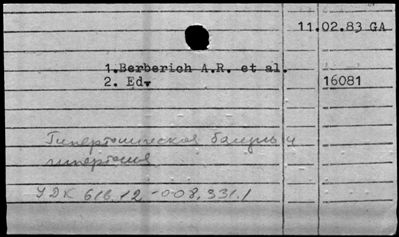 11.02.83 GA
1.Berberich A.R. et al.
2. Ed.
16081
Гипертоническая болезнь и
гипертония
УДК 616.12-008.331.1